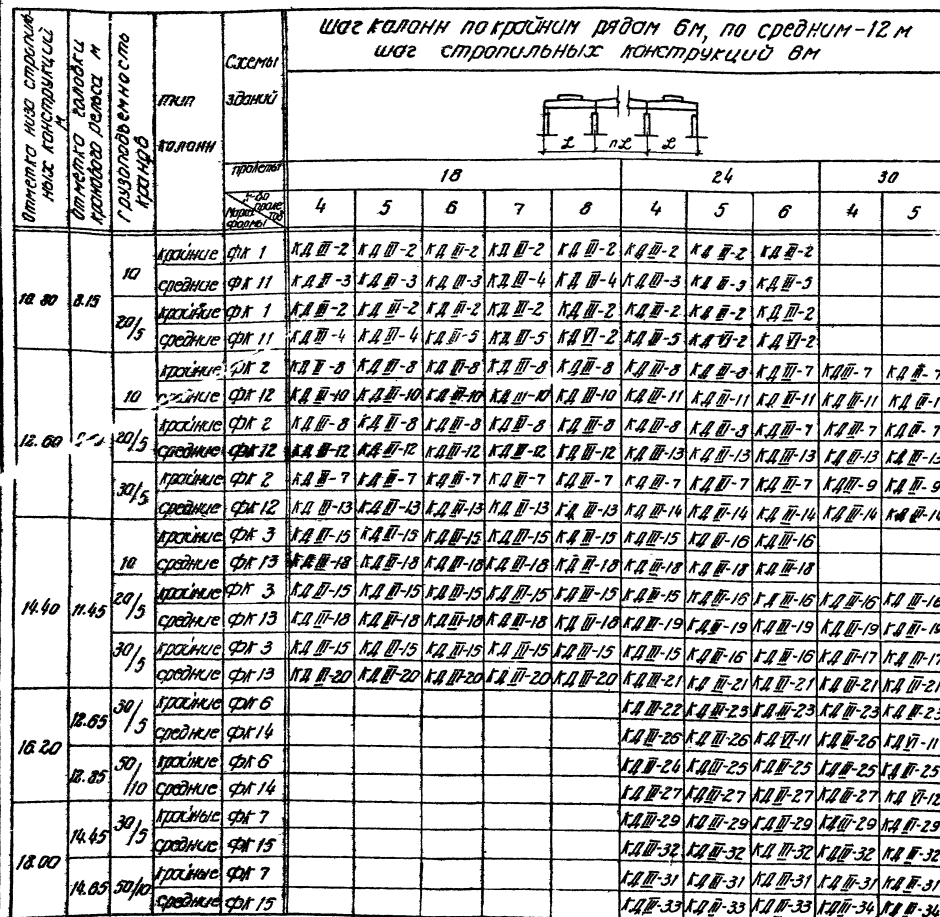 шаг колонн по крайним рядам 6м, по средним-12м
шаг стропильных конструкций 6м
Отметка низа стропильных конструкций м
Отметка головки кранового рельса м
Грузоподъемность кранов
тип колонн
Схемы зданий
L nL L
пролеты 18 24 30
к-во пролетов
Марка формы 4 5 6 7 8 4 5 6 4 5
10.80 8.15 10 крайние ФК 1 КДIII-2 КДIII-2 КДIII-2 КДIII-2 КДIII-2 КДIII-2 КДIII-2 КДIII-2
средние ФК 11 КДIII-3 КДIII-3 КДIII-3 КДIII-4 КДIII-4 КДIII-3 КДIII-3 КДIII-3
20/5 крайние ФК 1 КДIII-2 КДIII-2 КДIII-2 КДIII-2 КДIII-2 КДIII-2 КДIII-2 КДIII-2
средние ФК 11 КДIII-4 КДIII-4 КДIII-5 КДIII-5 КДVI-2 КДIII-5 КДVI-2 КДVI-2
12.60 10 крайние ФК 2 КДIII-8 КДIII-8 КДIII-8 КДIII-8 КДIII-8 КДIII-8 КДIII-8 КДIII-7 КДIII-7 КДIII-7
средние ФК 12 КДIII-10 КДIII-10 КДIII-10 КДIII-10 КДIII-10 КДIII-11 КДIII-11 КДIII-11 КДIII-11
20/5 крайние ФК 2 КДIII-8 КДIII-8 КДIII-8 КДIII-8 КДIII-8 КДIII-8 КДIII-8 КДIII-7 КДIII-7 КДIII-7
средние ФК 12 КДIII-12 КДIII-12 КДIII-12 КДIII-12 КДIII-12 КДIII-13 КДIII-13 КДIII-13 КДIII-13 КДIII-13
30/5 крайние ФК 2 КДIII-7 КДIII-7 КДIII-7 КДIII-7 КДIII-7 КДIII-7 КДIII-7 КДIII-7 КДIII-9 КДIII-9
средние ФК 12 КДIII-13 КДIII-13 КДIII-13 КДIII-13 КДIII-13 КДIII-14 КДIII-14 КДIII-14 КДIII-14 КДIII-14
14.40 11.45 10 крайние ФК 3 КДIII-15 КДIII-15 КДIII-15 КДIII-15 КДIII-15 КДIII-15 КДIII-16 КДIII-16
средние ФК 13 КДIII-18 КДIII-18 КДIII-18 КДIII-18 КДIII-18 КДIII-18 КДIII-18 КДIII-18
20/5 крайние ФК 3 КДIII-15 КДIII-15 КДIII-15 КДIII-15 КДIII-15 КДIII-15 КДIII-16 КДIII-16 КДIII-16 КДIII-16
средние ФК 13 КДIII-18 КДIII-18 КДIII-18 КДIII-18 КДIII-18 КДIII-19 КДIII-19 КДIII-19 КДIII-19
30/5 крайние ФК 3 КДIII-15 КДIII-15 КДIII-15 КДIII-15 КДIII-15 КДIII-15 КДIII-16 КДIII-16 КДIII-17 КДIII-17
средние ФК 13 КДIII-20 КДIII-20 КДIII-20 КДIII-20 КДIII-20 КДIII-21 КДIII-21 КДIII-21 КДIII-21 КДIII-21
16.20 12.65 30/5 крайние ФК 6 КДIII-22 КДIII-23 КДIII-23 КДIII-23 КДIII-23
средние ФК 14 КДIII-26 КДIII-26 КДVI-11 КДIII-26 КДVI-11
12.85 50/10 крайние ФК 6 КДIII-24 КДIII-25 КДIII-25 КДIII-25 КДIII-25
средние ФК 14 КДIII-27 КДIII-27 КДIII-27 КДIII-27 КДVI-12
18.00 14.45 30/5 крайные ФК 7 КДIII-29 КДIII-29 КДIII-29 КДIII-29 КДIII-29
средние ФК 15 КДIII-32 КДIII-32 КДIII-32 КДIII-32 КДIII-32
14.65 50/10 крайние ФК 7 КДIII-31 КДIII-31 КДIII-31 КДIII-31 КДIII-31
средние ФК 15 КДIII-33 КДIII-33 КДIII-33 КДIII-34 КДIII-34